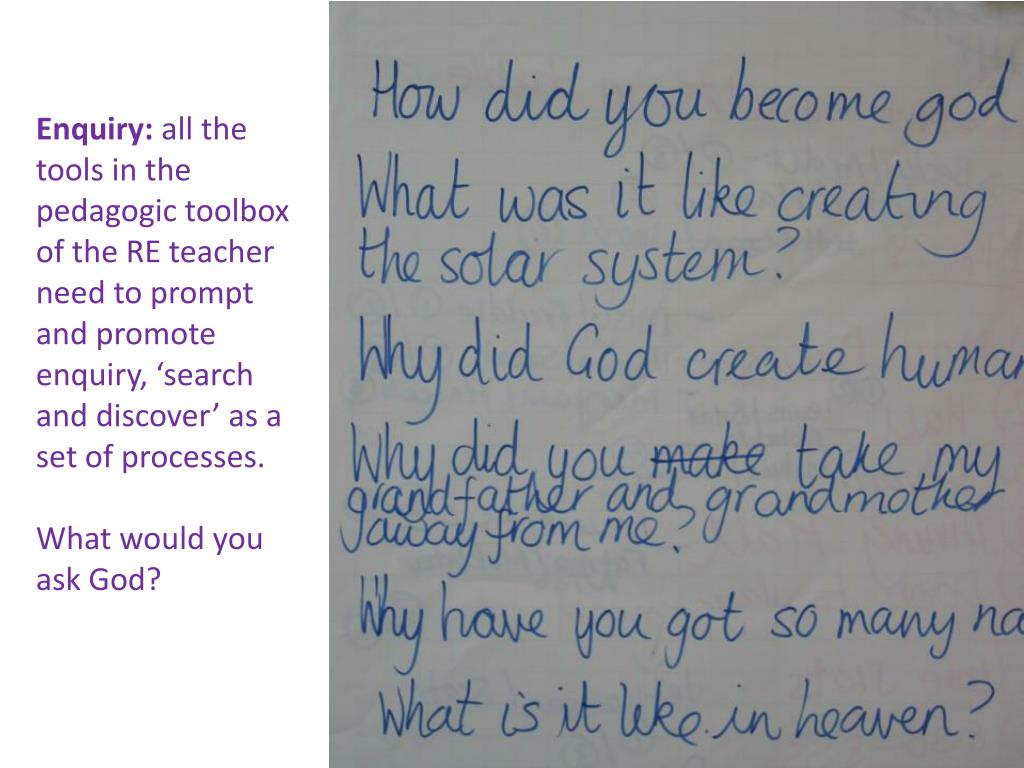 Enquiry: all the
tools in the
pedagogic toolbox
of the RE teacher
need to prompt
and promote
enquiry, ‘search
and discover’ as a
set of processes.
What would you
ask God?
How did you become god
What was it like creating
the solar system?
Why did God create human
Why did you make take my
grandfather and grandmother
away from me?
Why have you got so many na
What is it like in heaven?